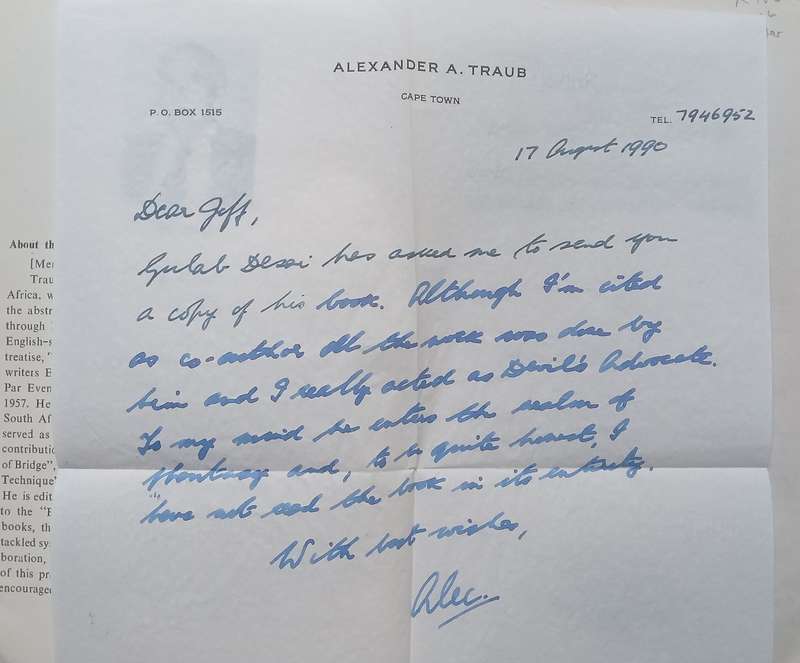 ALEXANDER A. TRAUB
CAPE TOWN
P. O. BOX 1515
TEL. 7946952
17 August 1990
Dear Jeff,
Gulab Desai has asked me to send you
a copy of his book. Although I'm cited
as co-author all the work was done by
him and I really acted as Devil's Advocate.
To my mind he enters the realm of
phantasy and, to be quite honest, I
have not read the book in its entirety.
With best wishes,
Alec.
About th
[Me
Trau
Africa, w
the abstr
through
English-s
treatise, "
writers E
Par Even
1957. He
South Af
served as
contributio
of Bridge",
Technique"
He is edit
to the "B
books, th
tackled sy
boration,
of this pr
encouraged